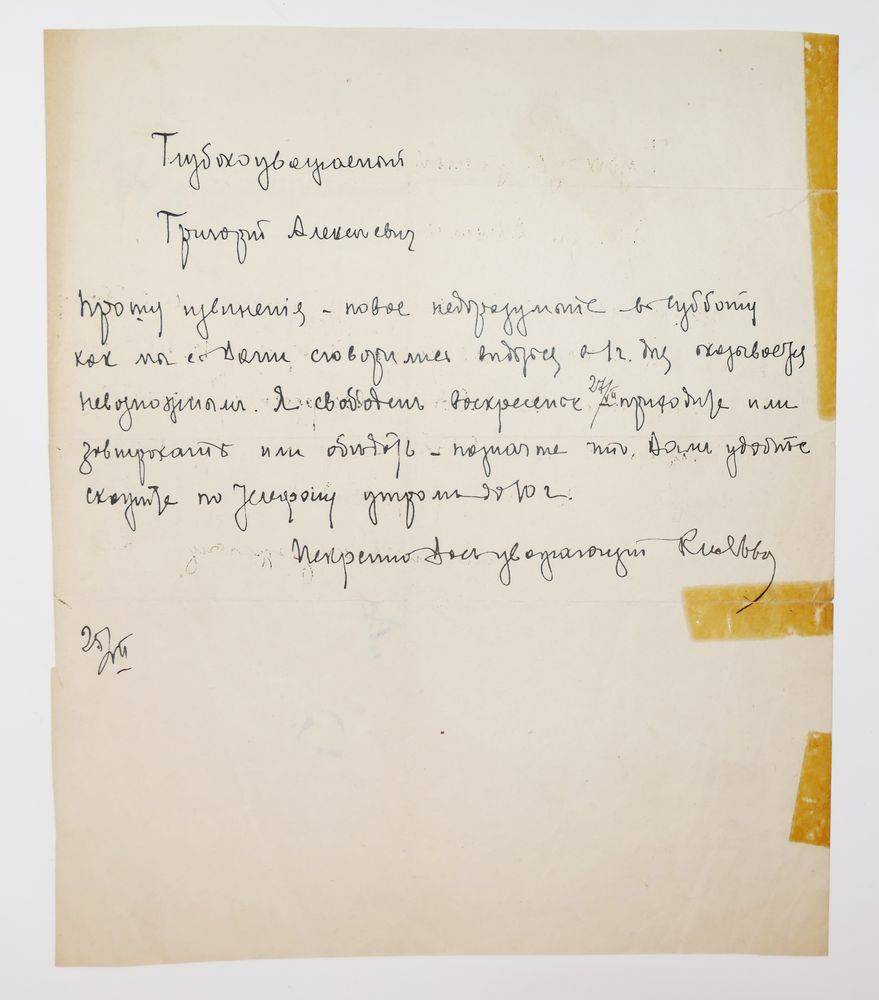 Глубокоуважаемый
Григорий Алексеевич
Прошу извинения – новое недоразумѣние – въ субботу
как мы с Вами сговорились видѣться в 1 ч. дня оказывается
невозможным. Я свободенъ воскресенье 27/VII приходите или
завтракать или обѣдать – назначте что Вамъ удобнѣе
скажите по телефону утромъ до 10 ч.
Искренно Васъ уважающий
25/VII